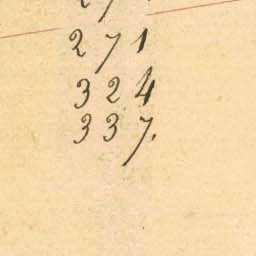 271
324
337.